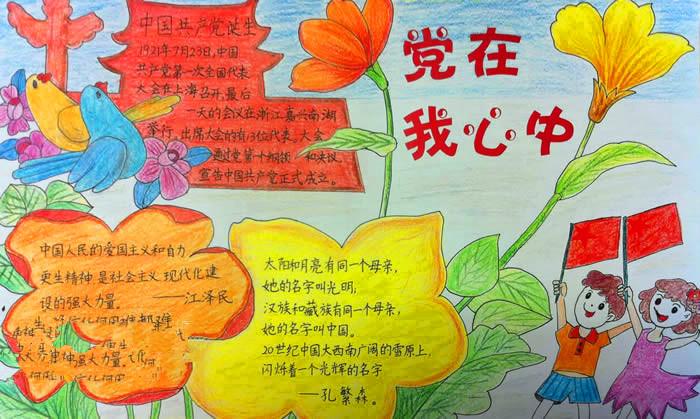 中国共产党诞生
1921年7月23日,中国
共产党第一次全国代表
大会在上海召开,最后
一天的会议在浙江嘉兴南湖
举行,出席大会的有13位代表。大会
通过党第一个纲领和决议,
宣告中国共产党正式成立。
党在
我心中
中国人民的爱国主义和自力
更生精神是社会主义现代化建
设的强大力量。
——江泽民
太阳和月亮有同一个母亲,
她的名字叫光明,
汉族和藏族有同一个母亲,
她的名字叫中国。
20世纪中国大西南广阔的雪原上,
闪烁着一个光辉的名字
——孔繁森。